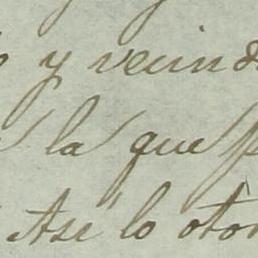 y vecind
la que
Ase lo otor